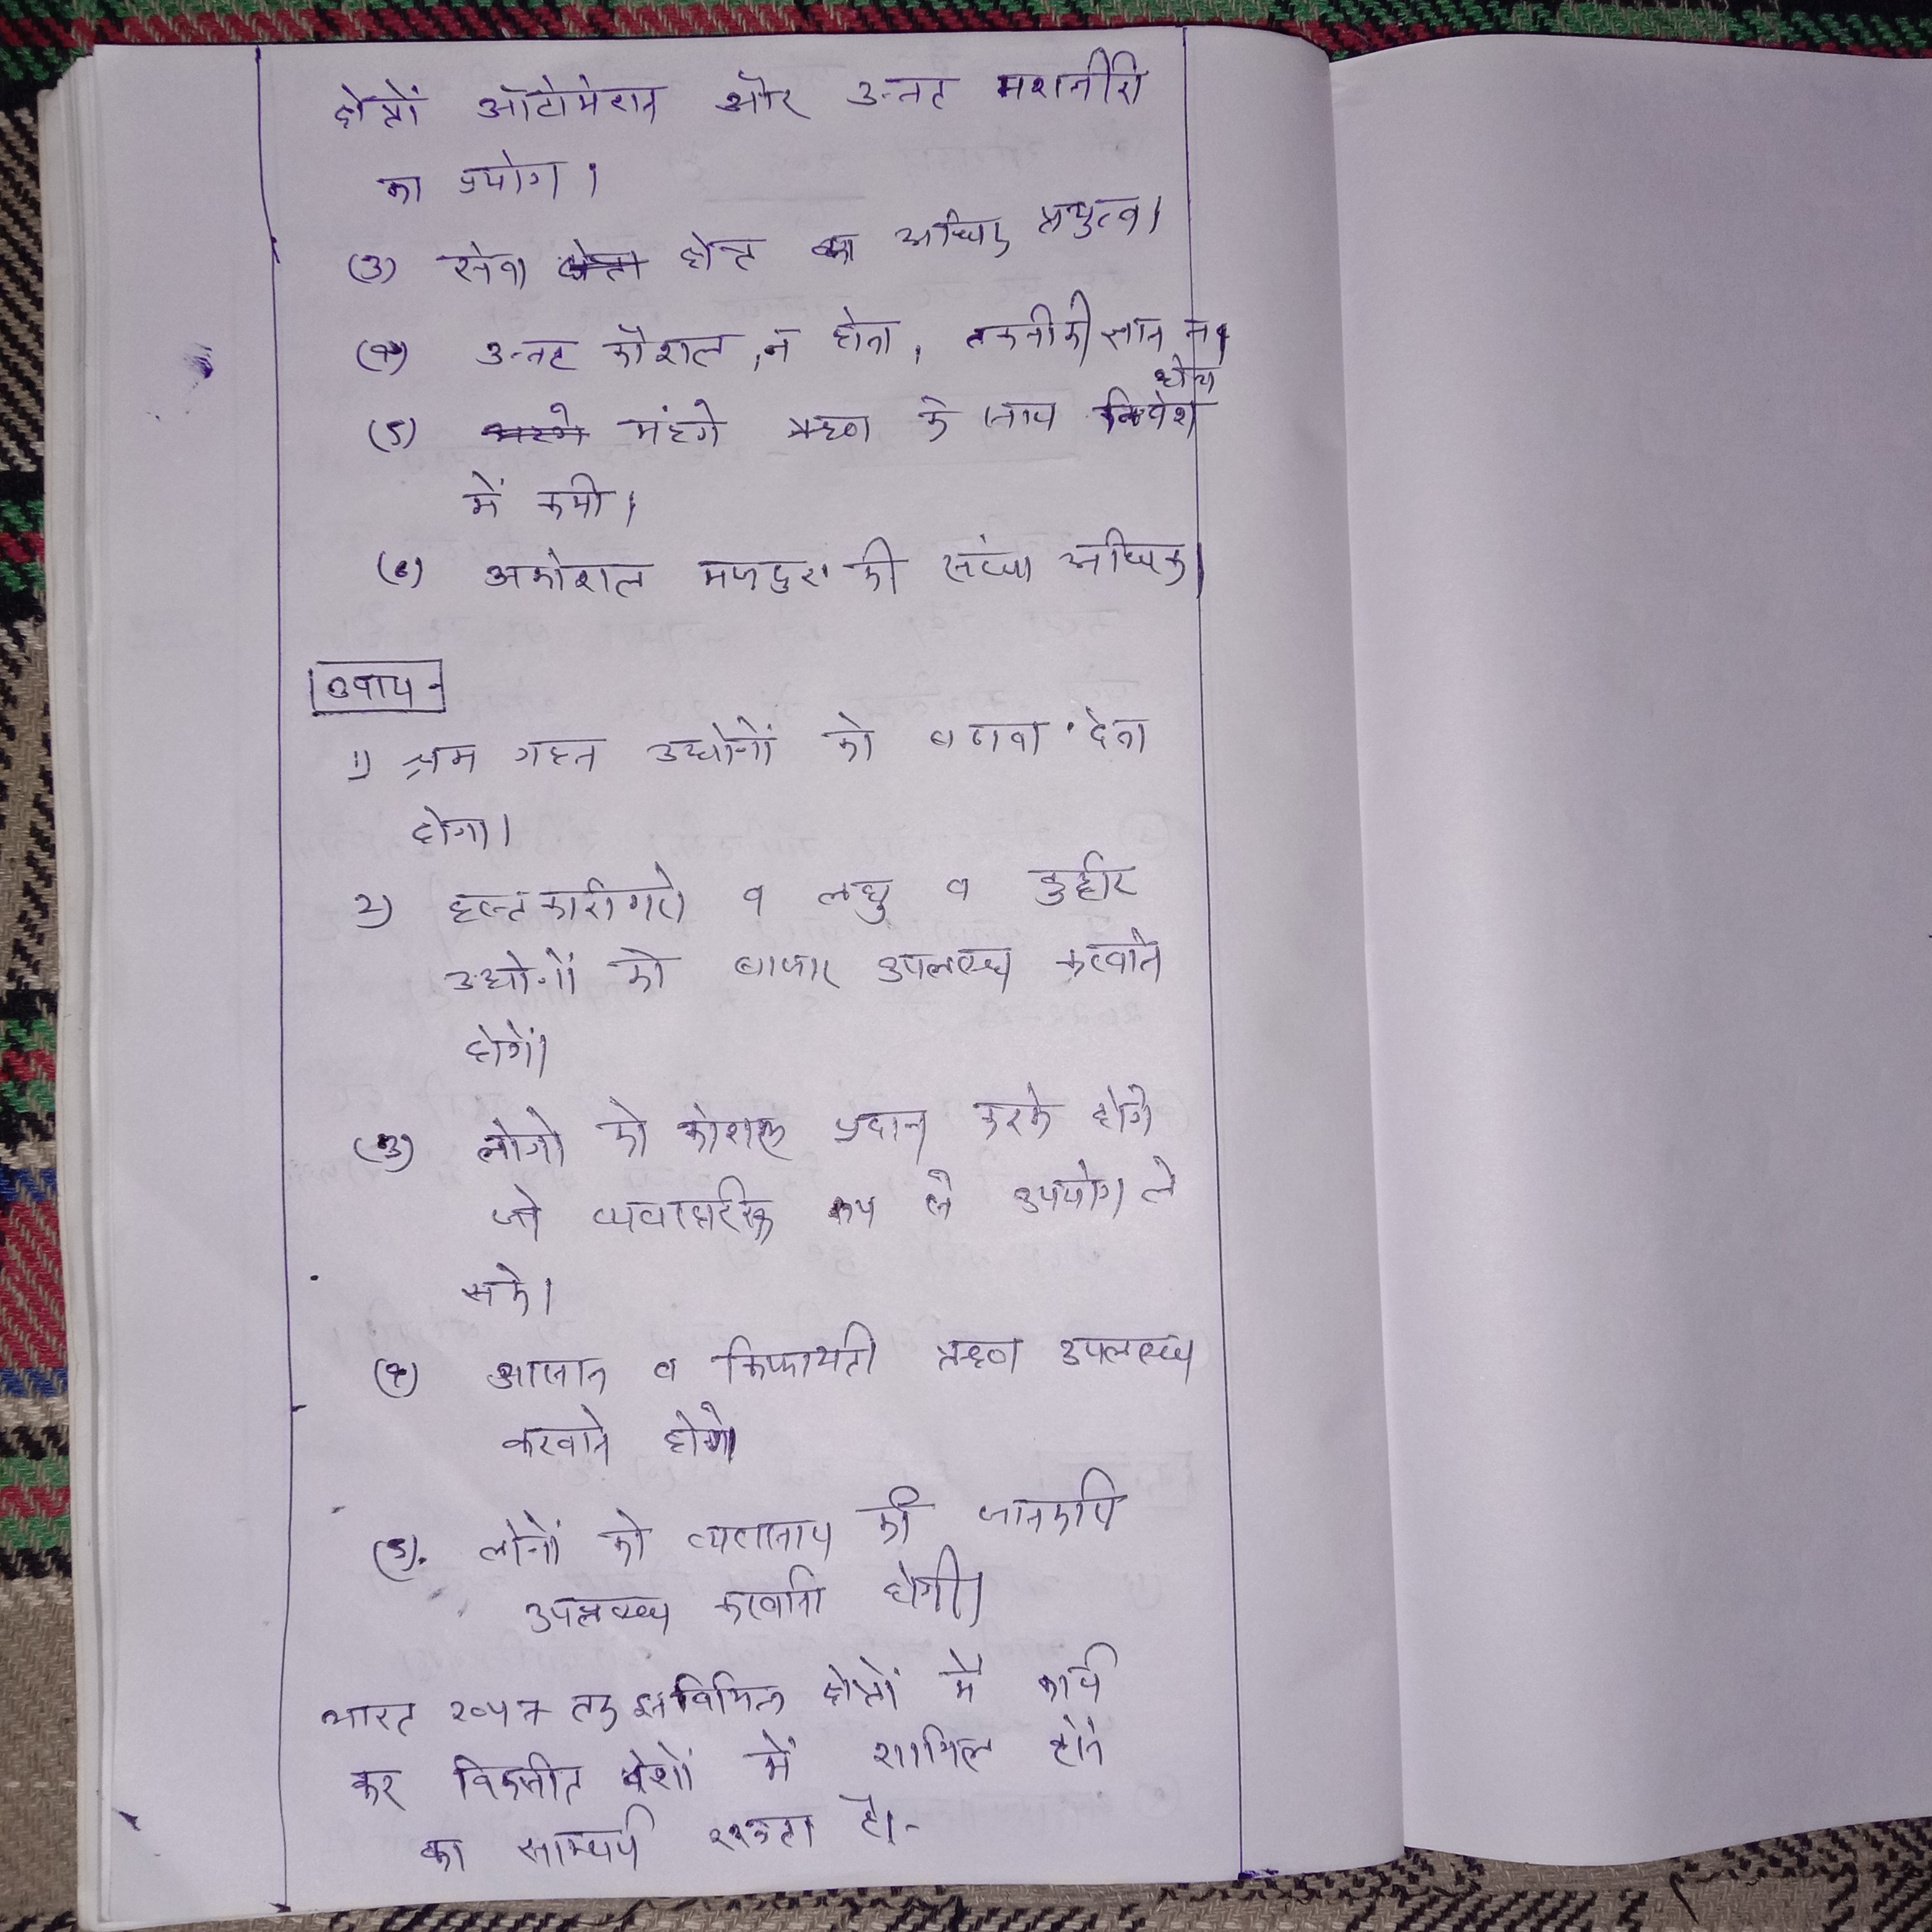 क्षेत्रों ऑटोमेशन और उन्नत मशनीरी
का प्रयोग।
(3) सेवा क्षेत्र का अधिक प्रभुत्व।
(4) उन्नत कौशल, न होना, तकनीकी ज्ञान न
होना
(5) मंहगे ऋण के साथ निवेश
में कमी।
(6) अकोशल मजदुरो की संख्या अधिक।
उपाय -
1) श्रम गहन उद्योगों को बढावा देना
होगा।
2) हस्तकारीगरो व लघु व कुटीर
उद्योगों को बाजार उपलब्ध करवाने
होगें।
(3) लोगो को कोशल प्रदान करके होगे
जो व्यवाहारिक रूप से उपयोग ले
सके।
(4) आसान व किफायती ऋण उपलब्ध
करवाने होगे।
(5). लोगों को व्यवसाय की जानकारी
उपलब्ध करवानी होगी।
भारत 2047 तक विभिन्न क्षेत्रों में कार्य
कर विकसीत देशों में शामिल होने
का सामर्थ्य रखता है।-